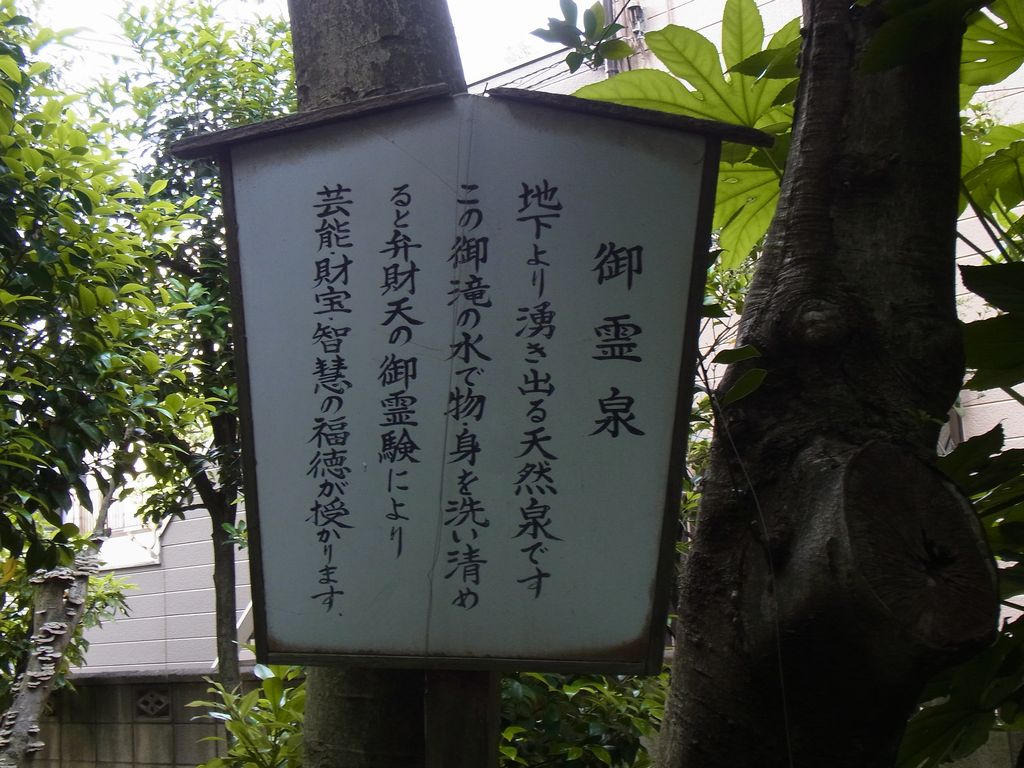 御霊泉
地下より湧き出る天然泉です
この御滝の水で物・身を洗い清め
ると弁財天の御霊験により
芸能財宝智慧の福徳が授かります.